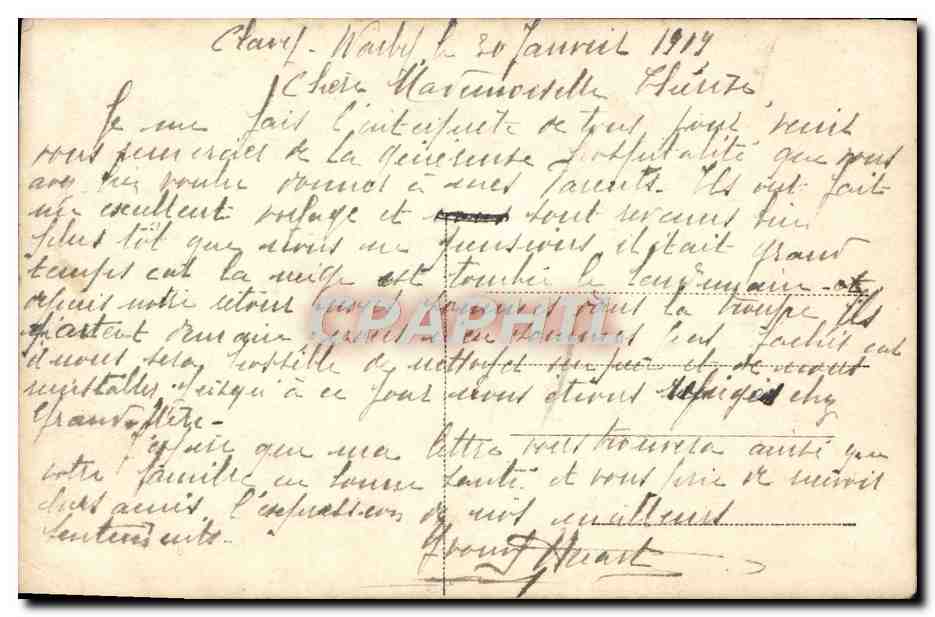 Clavy-Warby, le 20 Janvier 1919
Chère Mademoiselle Thérèse
Je me fais l'interprète de tous pour venir
vous remercier de la généreuse hospitalité que vous
avez bien voulu donner à mes Parents. Ils ont fait
un excellent voyage et sont revenus bien
plus tôt que nous ne pensions il était grand
temps car la neige est tombée le lendemain et
depuis notre retour nous sommes sous la troupe Ils
partent demain nous n'en sommes pas fachés car
il nous sera possible de nettoyer un peu et de nous
réinstaller jusqu'à ce jour nous étions réfugiés chez
Grand-Mère-
J'espère que ma lettre vous trouvera ainsi que
votre famille en bonne santé et vous prie de recevoir
chers amis, l'expression de nos meilleurs
Sentiments.
Huart
CPAPHIL